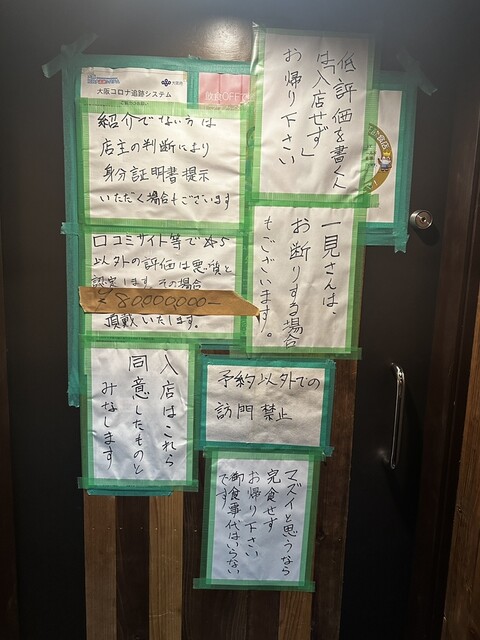 大阪コロナ追跡システム
低評価を書く人
は「入店せず」
お帰り下さい
紹介でない方は
店主の判断により
身分証明書提示
いただく場合もございます
一見さんは、
お断りする場合
もございます。
口コミサイト等で☆5
以外の評価は悪質と
認定します。その場合
¥80,000,000-
頂戴いたします。
入店はこれら
同意したものと
みなします
予約以外での
訪門禁止
マズイと思うなら
完食せず
お帰り下さい
御食事代はいらない
です